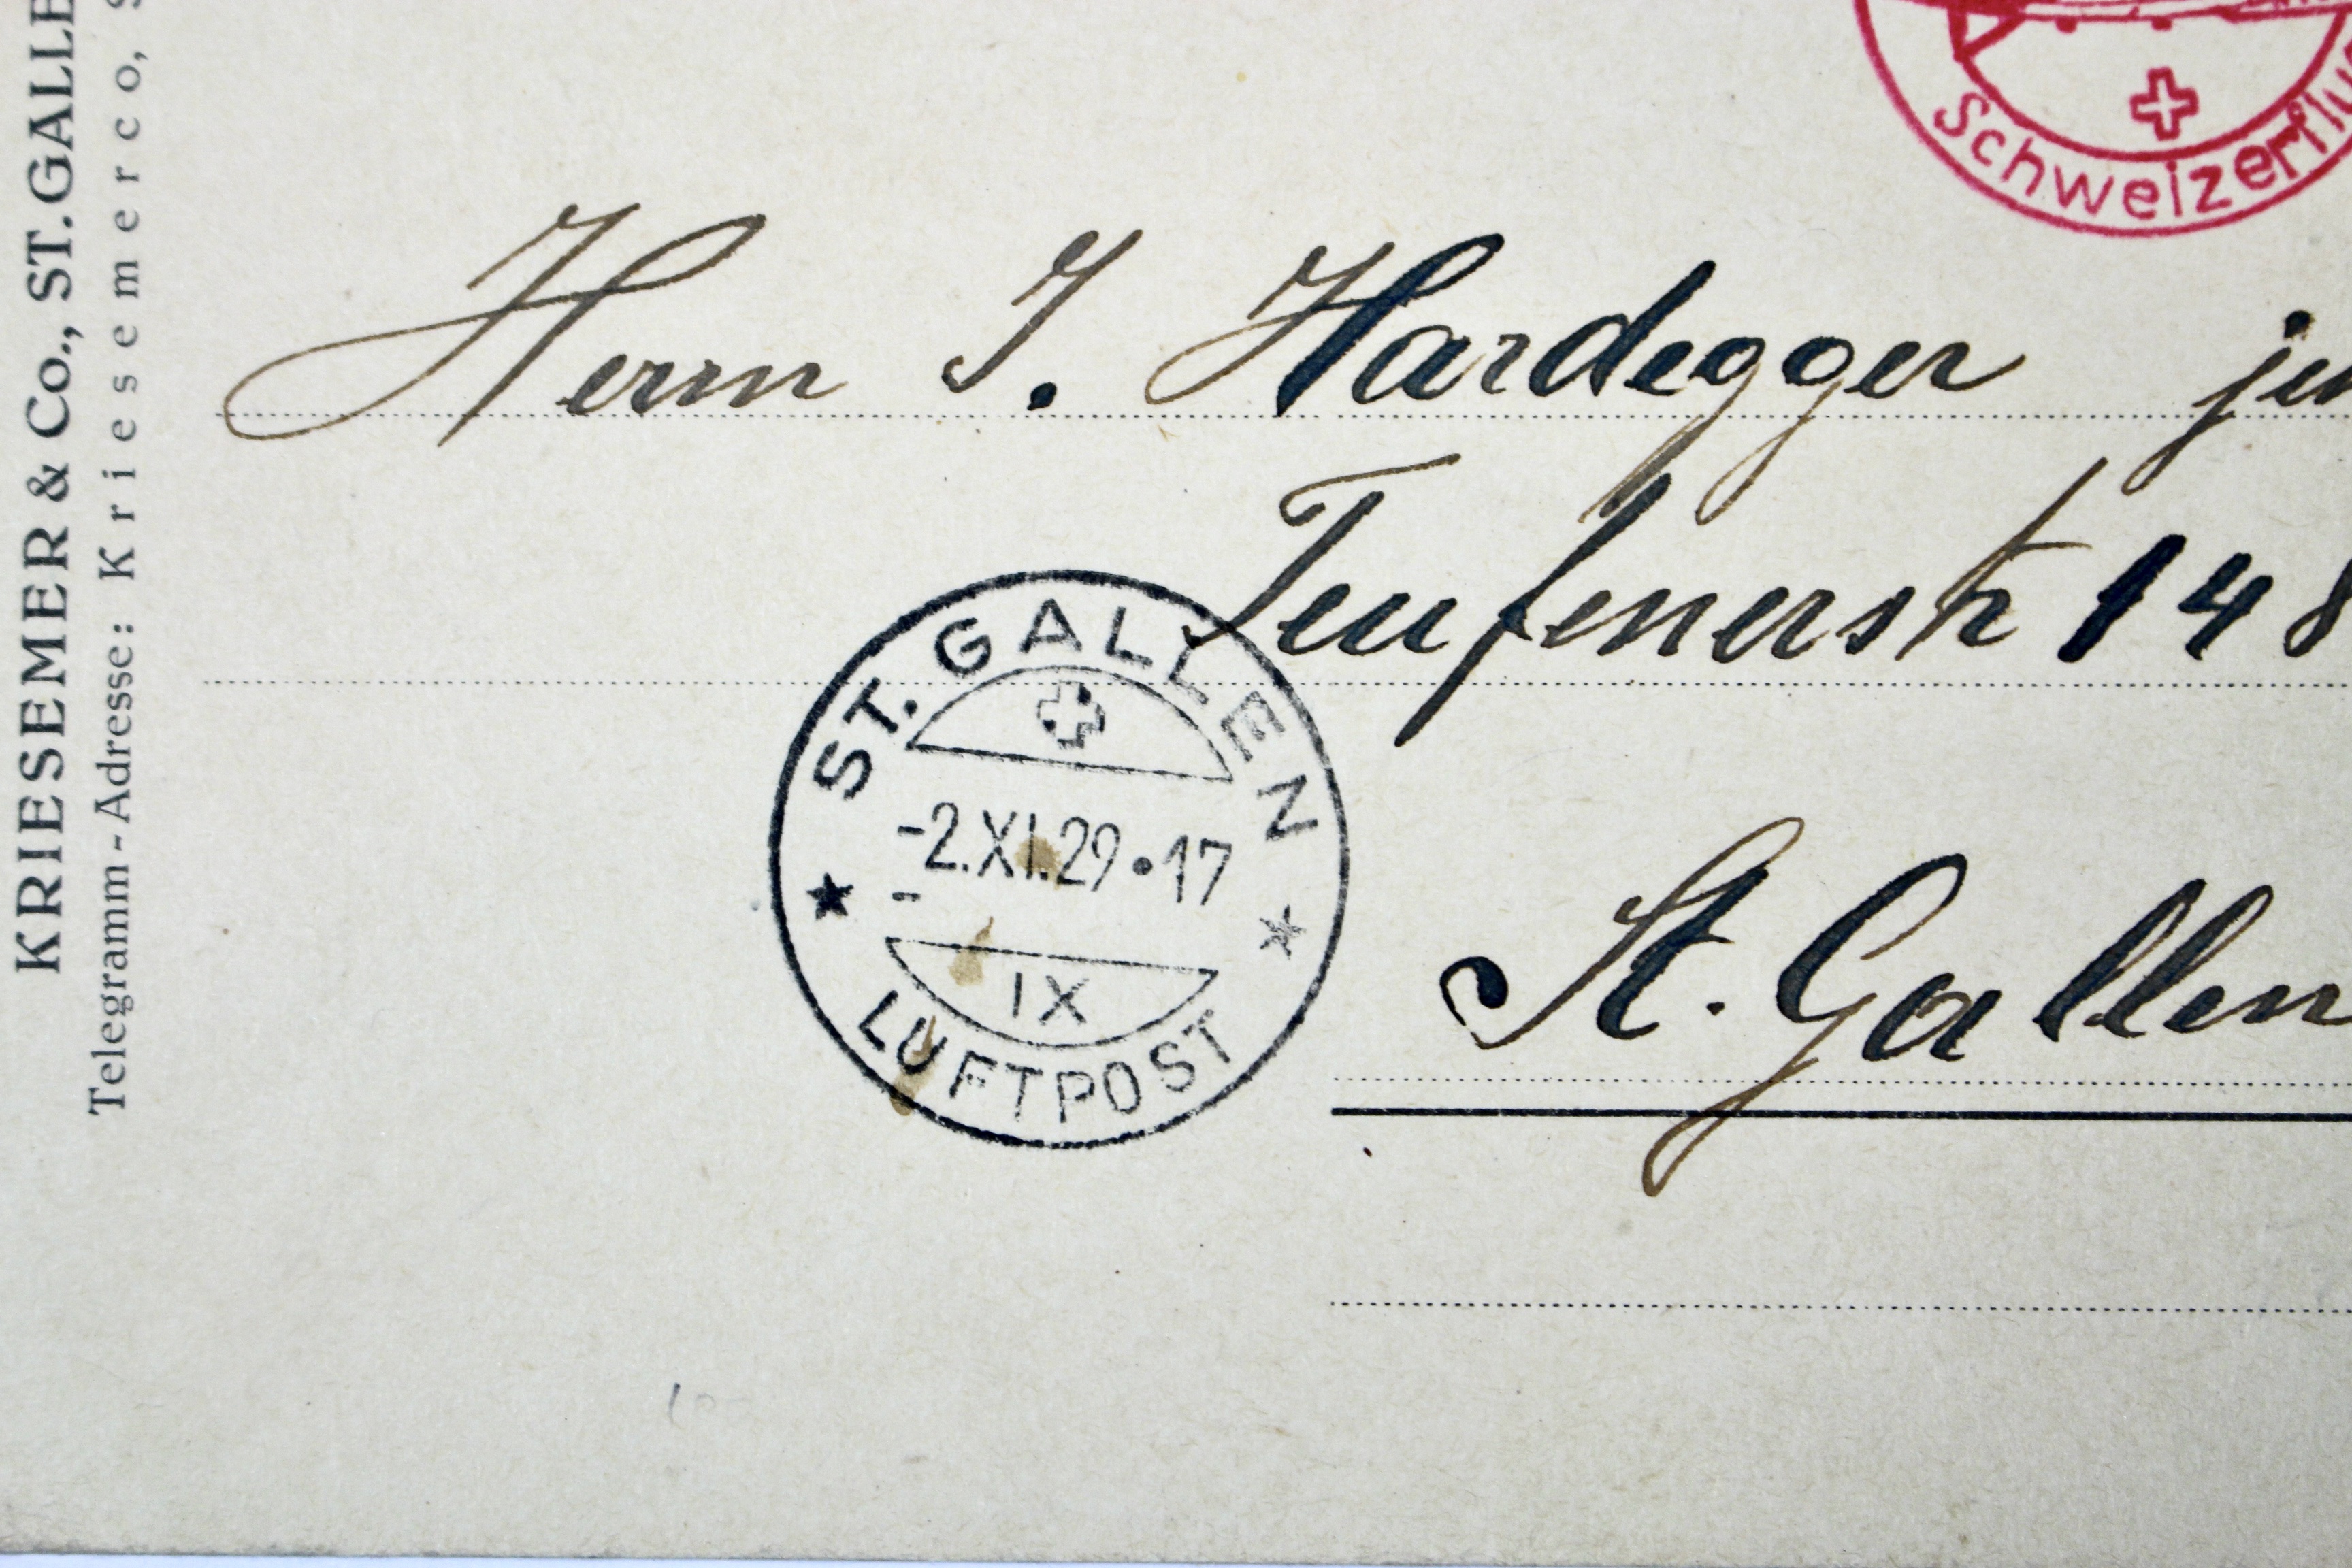 KRIESEMER & Co., ST. GALLE
Telegramm-Adresse: Kriesemerco, S
Schweizerflu
Herrn J. Hardegger ju
Teufenerstr 148
ST. GALLEN
-2.XI.29•17
-
IX
LUFTPOST
St. Gallen